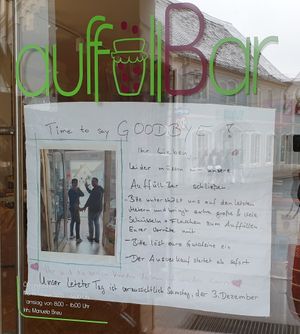 auffüllBar
Time to say GOODBYE !
Ihr Lieben
Leider müssen wir unsere
Auffüllbar schließen
- Bitte unterstützt uns auf den letzten
Metern und bringt extra große & viele
Schüsseln & Flaschen zum Auffüllen
Eurer Vorräte mit
- Bitte löst eure Gutscheine ein
- Der Ausverkauf startet ab sofort
Unser letzter Tag ist voraussichtlich Samstag, der 3. Dezember
Samstag von 8.00 - 16.00 Uhr
Manuela Breu